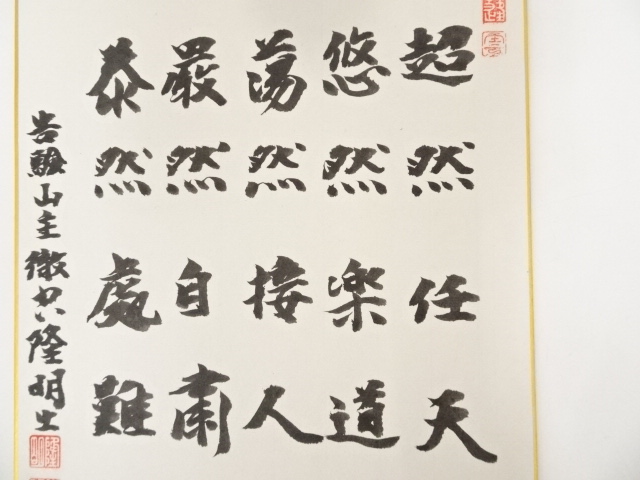 超然任天
悠然楽道
荡然接人
嚴然自肅
泰然處難
山主徹空隆明